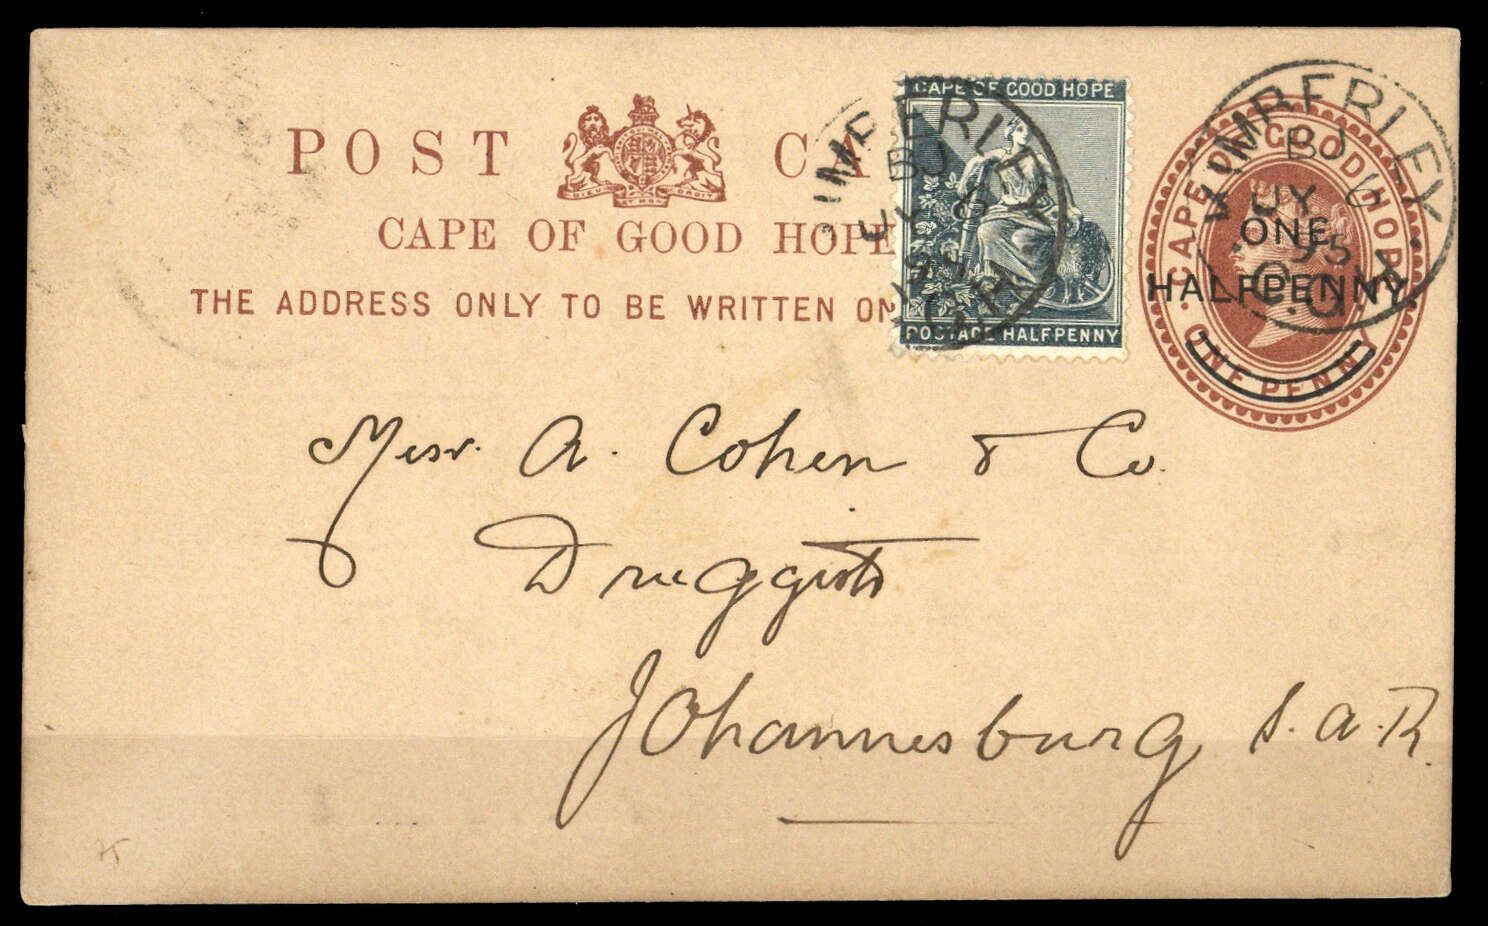 POST CA
CAPE OF GOOD HOPE
THE ADDRESS ONLY TO BE WRITTEN ON
DIEU ET MON DROIT
CAPE OF GOOD HOPE
POSTAGE HALFPENNY
KIMBERLEY
BJ
JY 6
95
C.G.H
CAPE OF GOOD HOPE
ONE PENNY
ONE
HALFPENNY
KIMBERLEY
BJ
JY 6
95
C.G
Messr. A. Cohen & Co.
Druggists
Johannesburg S.A.R.